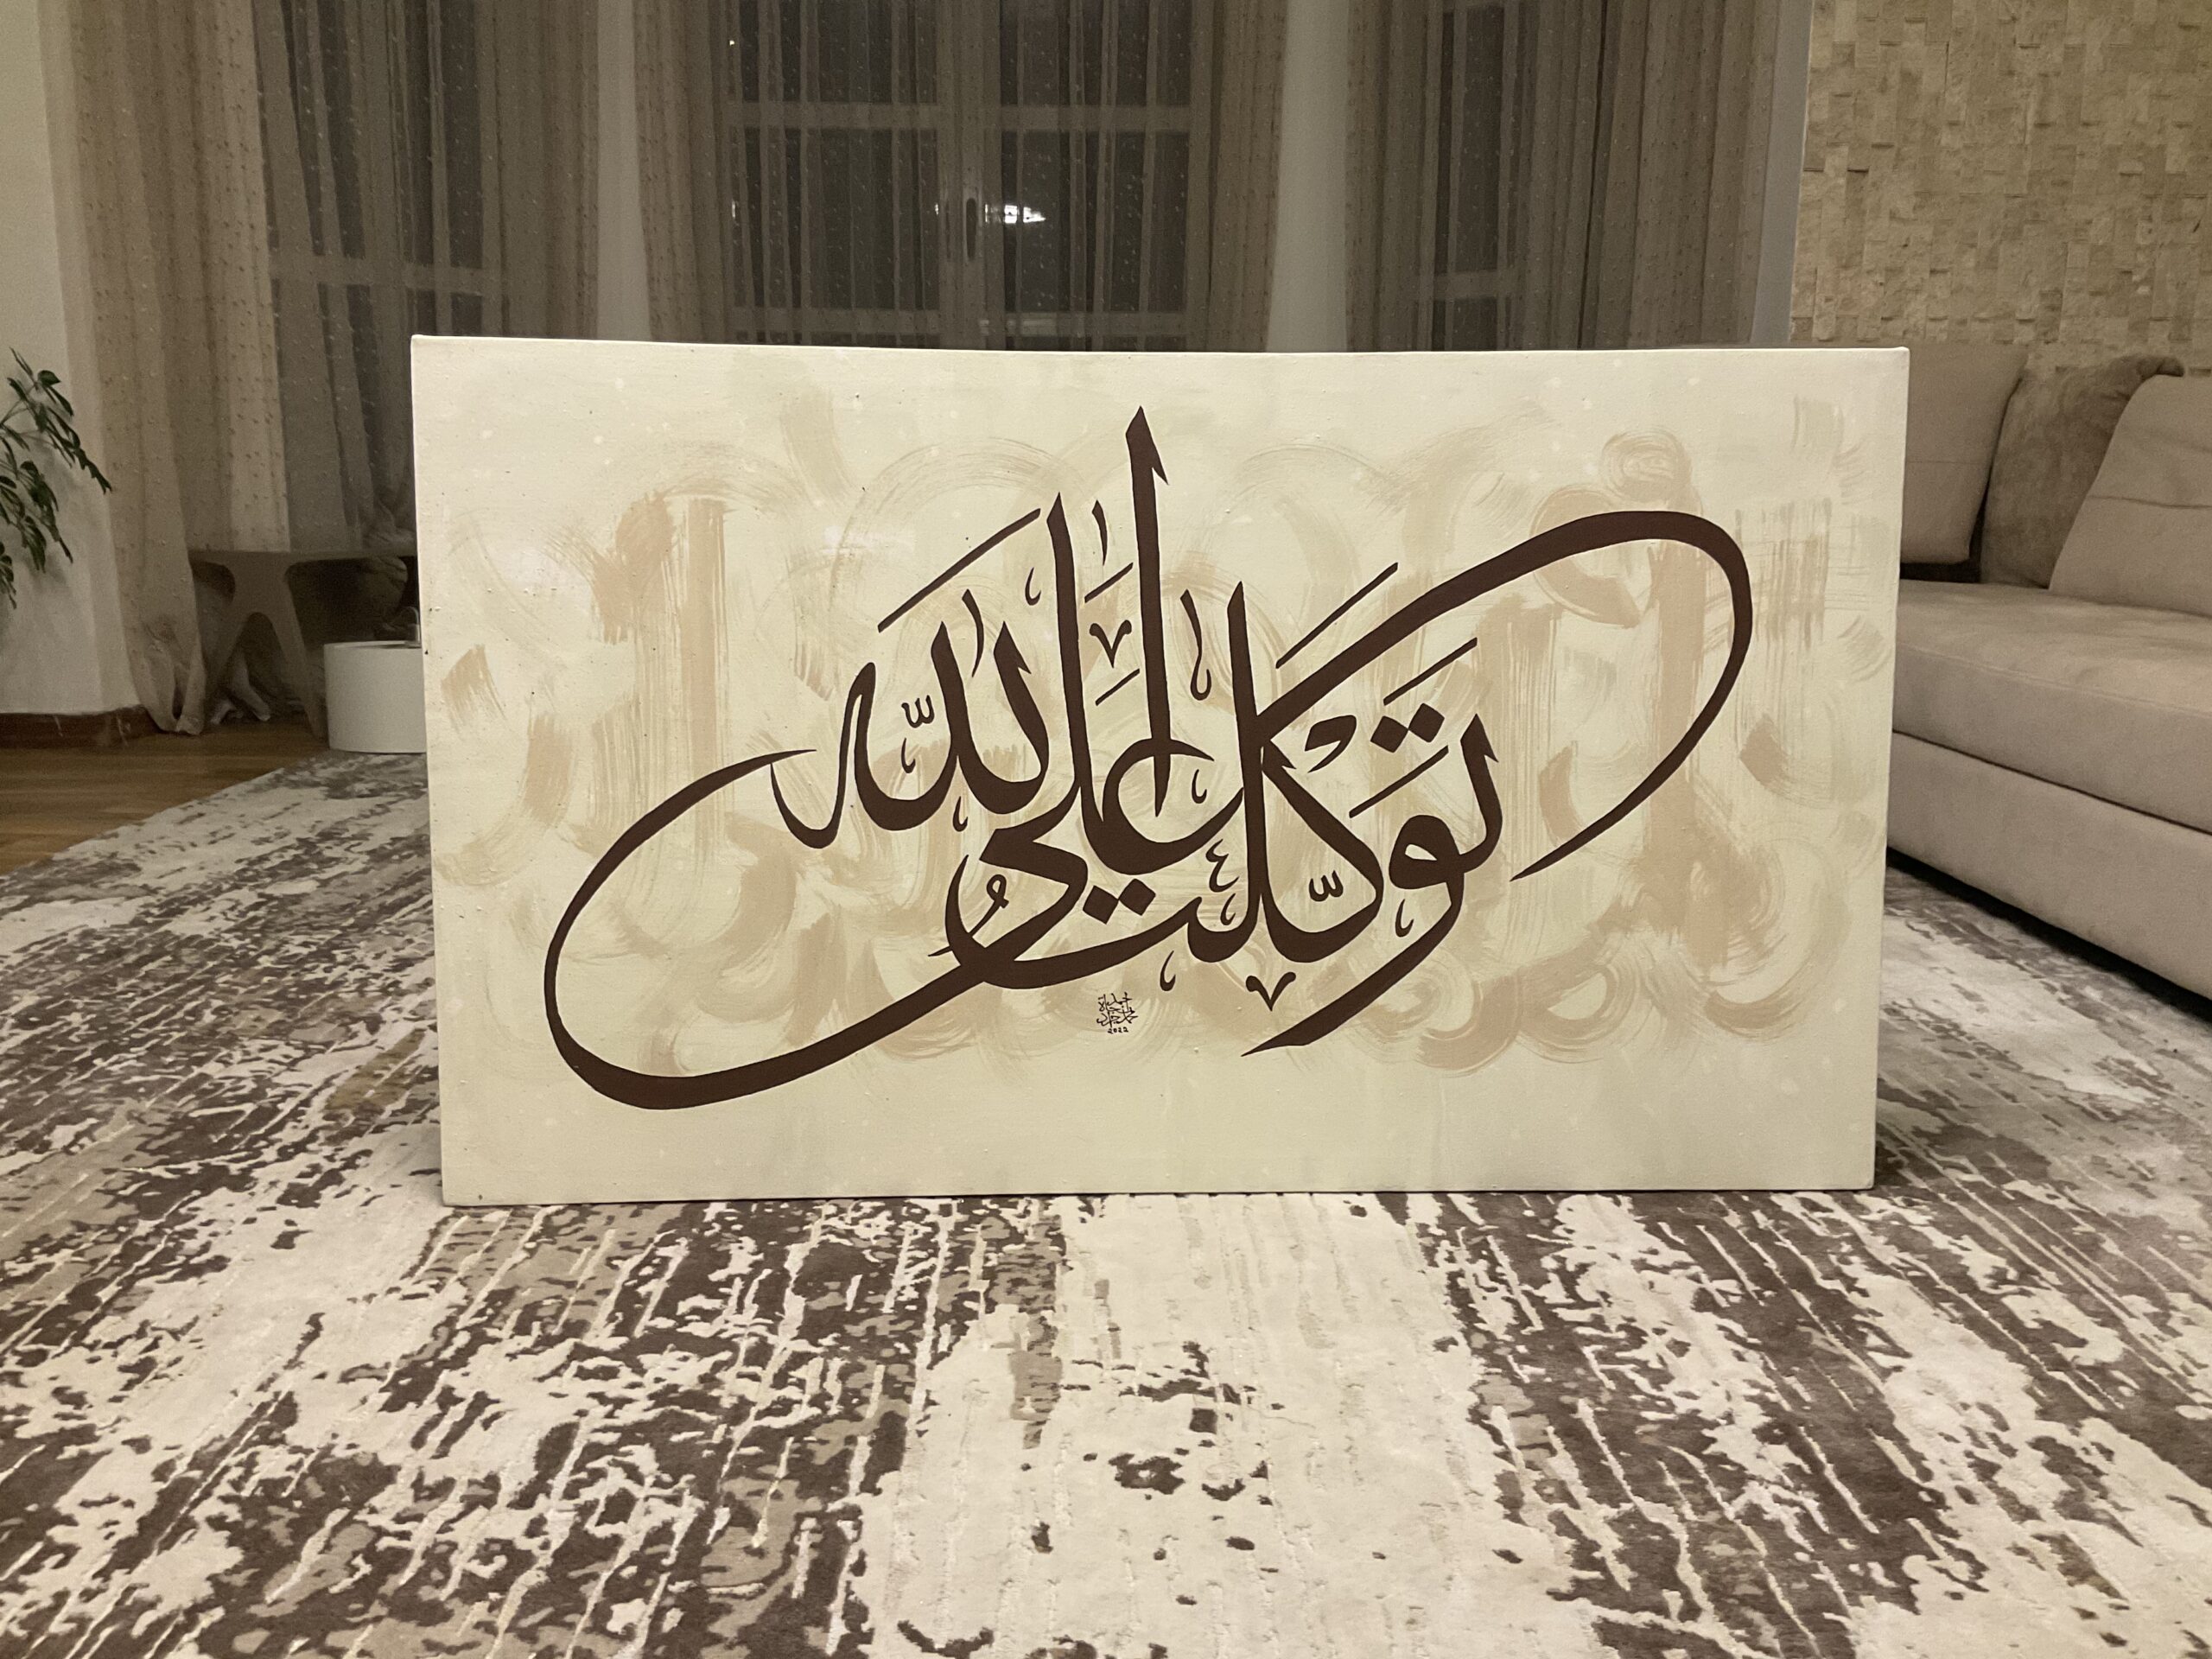 توكلت على الله
2022